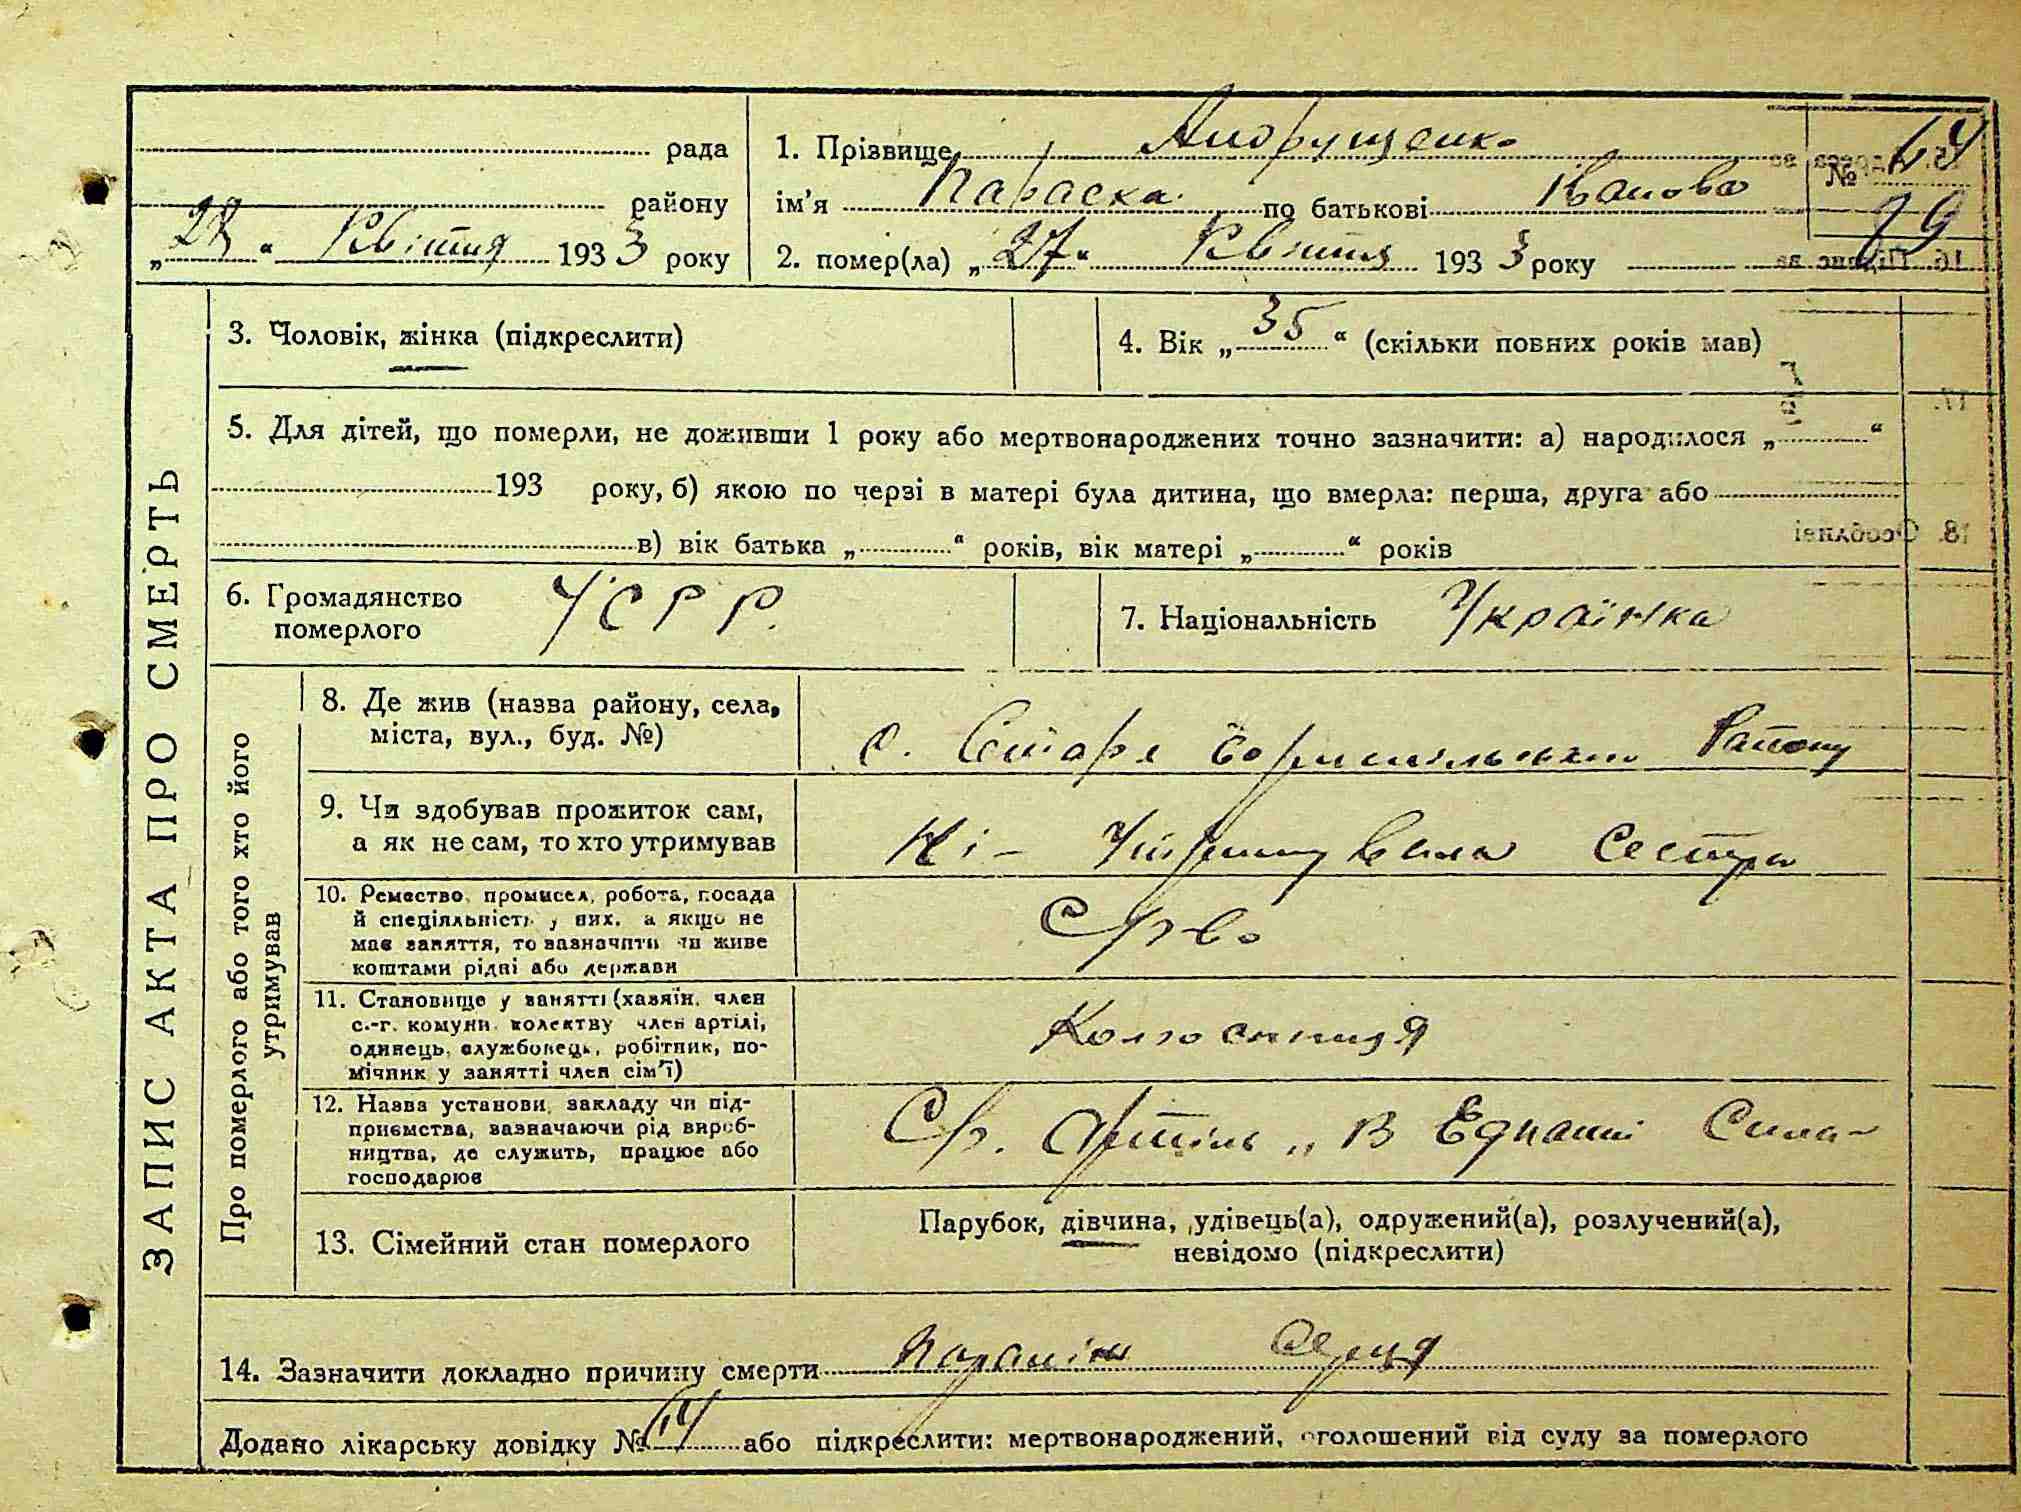 ЗАПИС АКТА ПРО СМЕРТЬ
рада
району
„28“ Квітня 1933 року
1. Прізвище Андрущенко
ім’я Параска по батькові Іванова
2. помер(ла) „27“ Квітня 1933 року
№ 64
3. Чоловік, жінка (підкреслити)
4. Вік „35“ (скільки повних років мав)
5. Для дітей, що померли, не доживши 1 року або мертвонароджених точно зазначити: а) народилося „ “
193 року, б) якою по черзі в матері була дитина, що вмерла: перша, друга або
в) вік батька „ “ років, вік матері „ “ років
6. Громадянство
померлого
УСРР.
7. Національність Українка
Про померлого або того хто його
утримував
8. Де жив (назва району, села,
міста, вул., буд. №)
с. Старе Бориспільського Району
9. Чи здобував прожиток сам,
а як не сам, то хто утримував
Ні – Утримувала Сестра
10. Ремество, промисел, робота, посада
й спеціяльність у них, а якщо не
має заняття, то зазначити чи живе
коштами рідні або держави
11. Становище у занятті (хазяїн, член
с.-г. комуни, колективу член артілі,
одинець, службовець, робітник, по-
мічник у занятті член сім’ї)
Колгоспниця
12. Назва установи, закладу чи під-
приємства, зазначаючи рід вироб-
ництва, де служить, працює або
господарює
Артіль „В Єднанні Сила“
13. Сімейний стан померлого
Парубок, дівчина, удівець(а), одружений(а), розлучений(а),
невідомо (підкреслити)
14. Зазначити докладно причину смерти Параліч Серця
Додано лікарську довідку № 64 або підкреслити: мертвонароджений, оголошений від суду за померлого